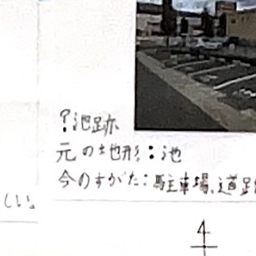 ?池跡
元の地形:池
今のすがた:駐車場、道路
しい。
4